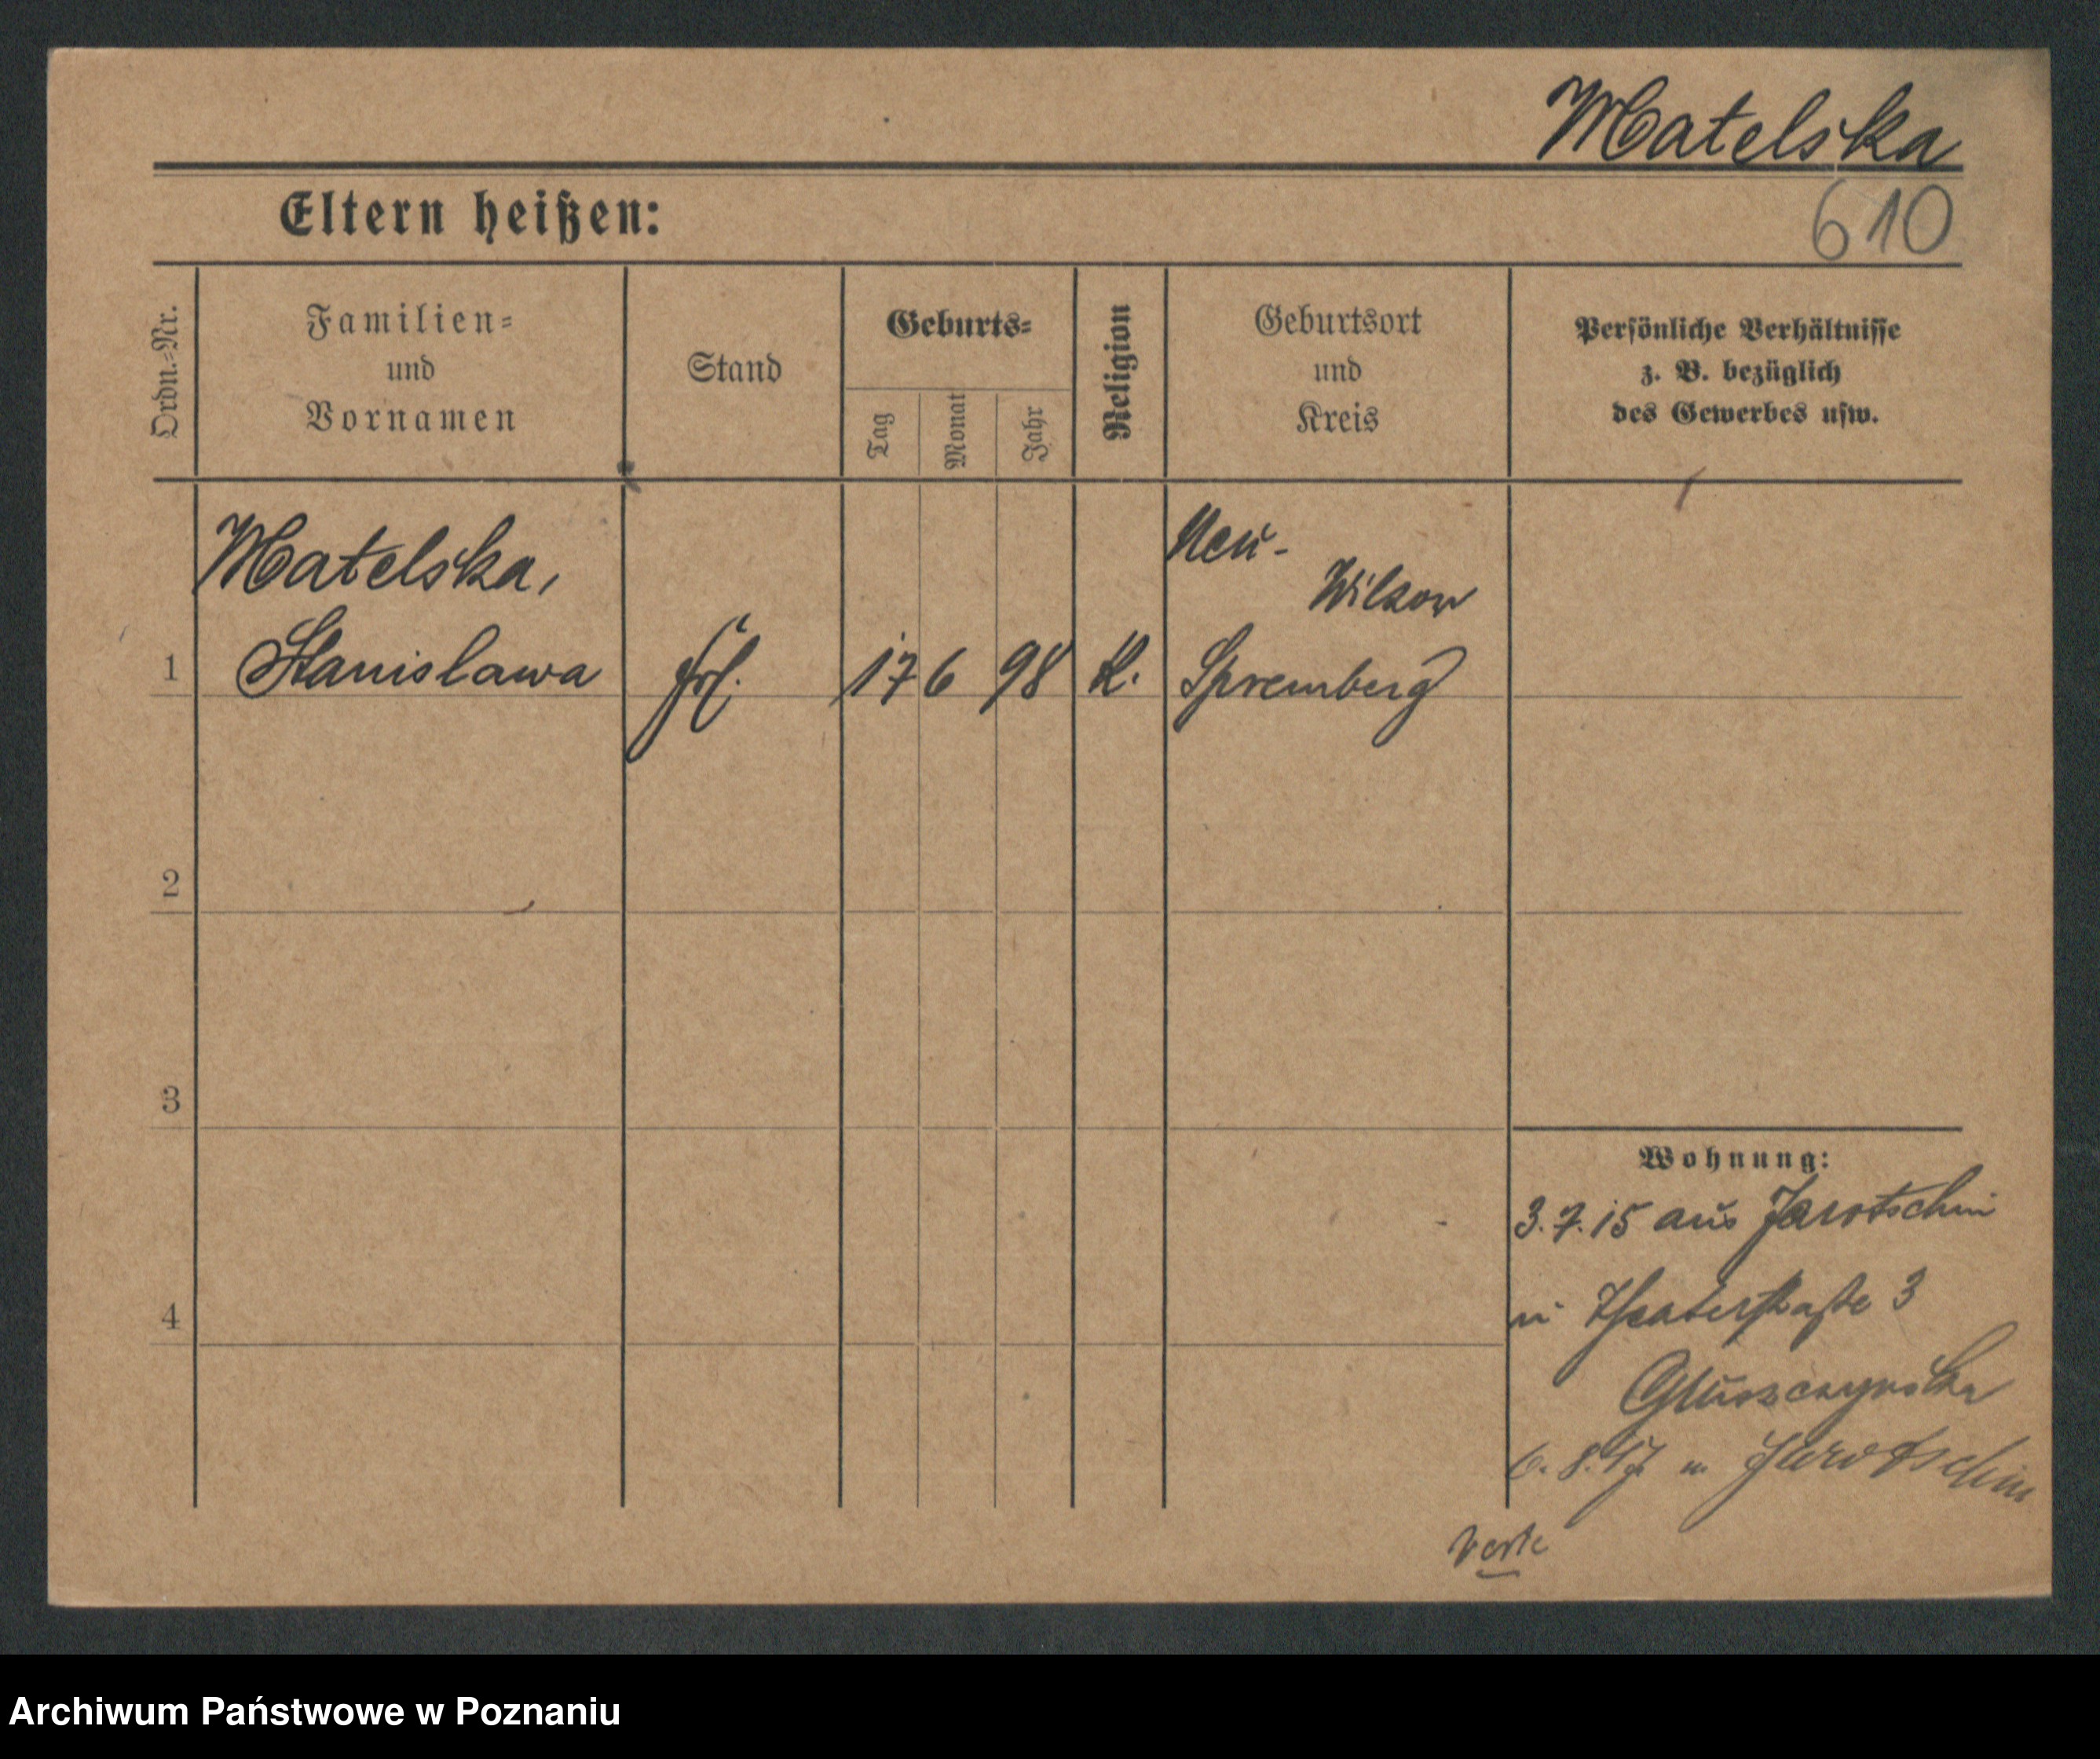 Matelska
610
Eltern heißen:
Ordn.-Nr.
Familien-
und
Vornamen
Stand
Geburts-
Tag
Monat
Jahr
Religion
Geburtsort
und
Kreis
Persönliche Verhältnisse
z. B. bezüglich
des Gewerbes usw.
Matelska,
Neu-
Wilkow
1 Stanislawa Frl. 17 6 98 K. Spremberg
2
3
4
Wohnung:
3.7.15 aus Jarotschin
n. Theaterstraße 3
Gluszczynska
6.8.17 n. Jarotschin
Archiwum Państwowe w Poznaniu